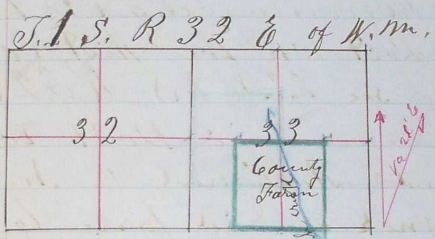 T. 1 S. R 32 E of W. m.
32
33
County
Farm